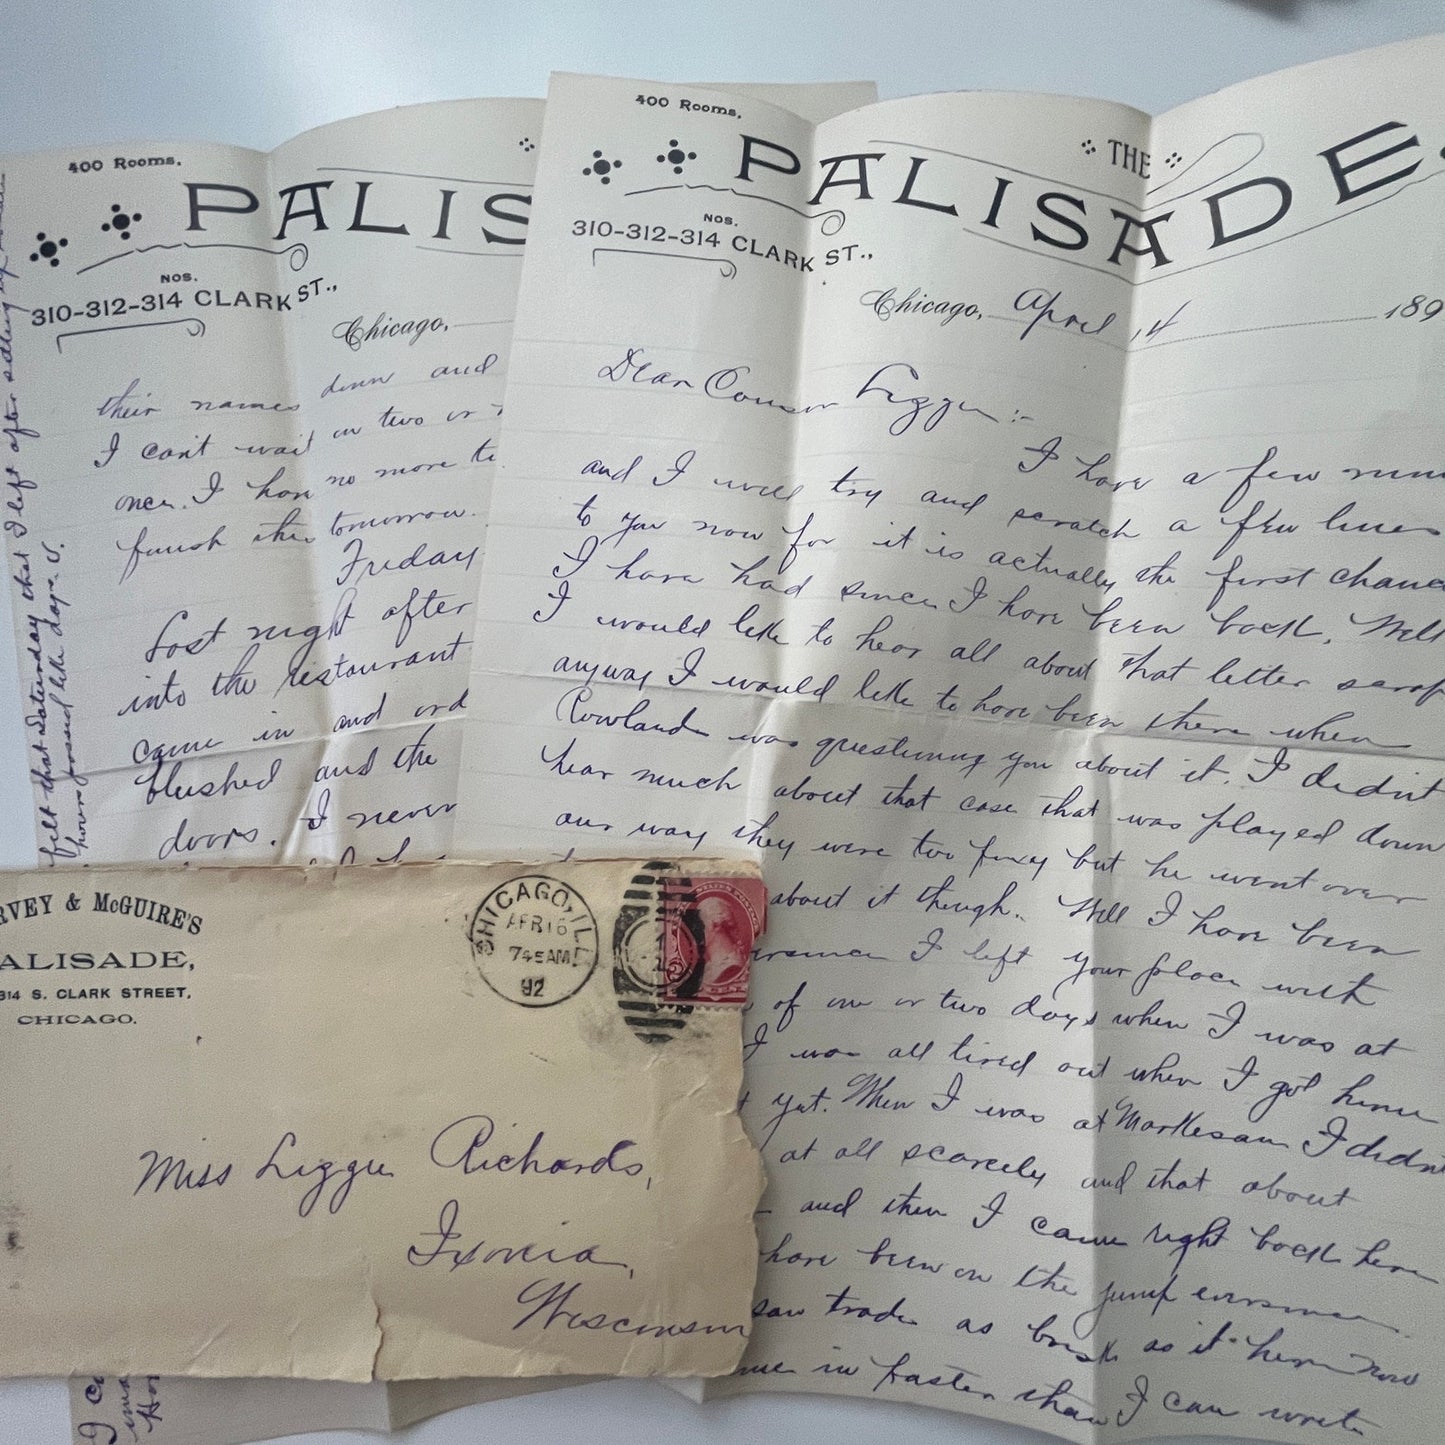 400 Rooms.
PALIS
NOS.
310-312-314 CLARK ST.,
Chicago,
their names down and
I can't wait on two or
once. I have no more ti
finish this tomorrow.
Friday
Last night after
into the restaurant
came in and ord
blushed and the
doors. I never
felt that Saturday that I left after
have passed like days. V.
400 Rooms.
THE
PALISADE
NOS.
310-312-314 CLARK ST.,
Chicago, April 14 189
Dear Cousin Lizzie:-
I have a few minu
and I will try and scratch a few lines
to you now for it is actually the first chance
I have had since I have been back. Well
I would like to hear all about that letter scrap
anyway I would like to have been there when
Rowlands was questioning you about it. I didn't
hear much about that case that was played down
our way they were too foxy but he went over
about it though. Well I have been
eversince I left your place with
of one or two days when I was at
I was all tired out when I got home
yet. When I was at Markesan I didn't
at all scarcely and that about
and then I came right back here
have been on the jump eversince.
saw trade as brisk as it here now
me in faster than I can write
RVEY & McGUIRE'S
ALISADE,
314 S. CLARK STREET,
CHICAGO.
CHICAGO, ILL
APR 16
745 AM
92
Miss Lizzie Richards,
Ixonia,
Wisconsin